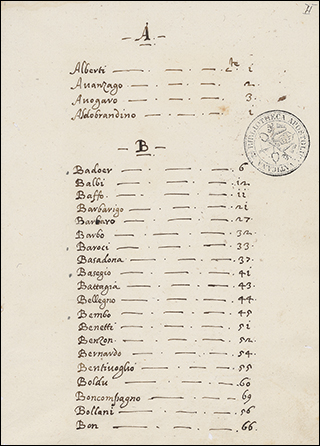 A
Alberti — — — — — i
Auanzago — — — — 2
Auogaro — — — — 3
Aldobrandino — — — i
B
Badoer — — — — 6
Balbi — — — — 12
Baffo — — — — ii
Barbarigo — — — — 21
Barbaro — — — — 27
Barbo — — — — 32
Baroci — — — — 33
Basadona — — — — 37
Basegio — — — — 41
Battagia — — — — 43
Bellegno — — — — 44
Bembo — — — — 45
Benetti — — — — 51
Benzon — — — — 52
Bernardo — — — — 54
Bentiuoglio — — — — 55
Boldu — — — — 60
Boncompagno — — — 69
Bollani — — — — 56
Bon — — — — 66